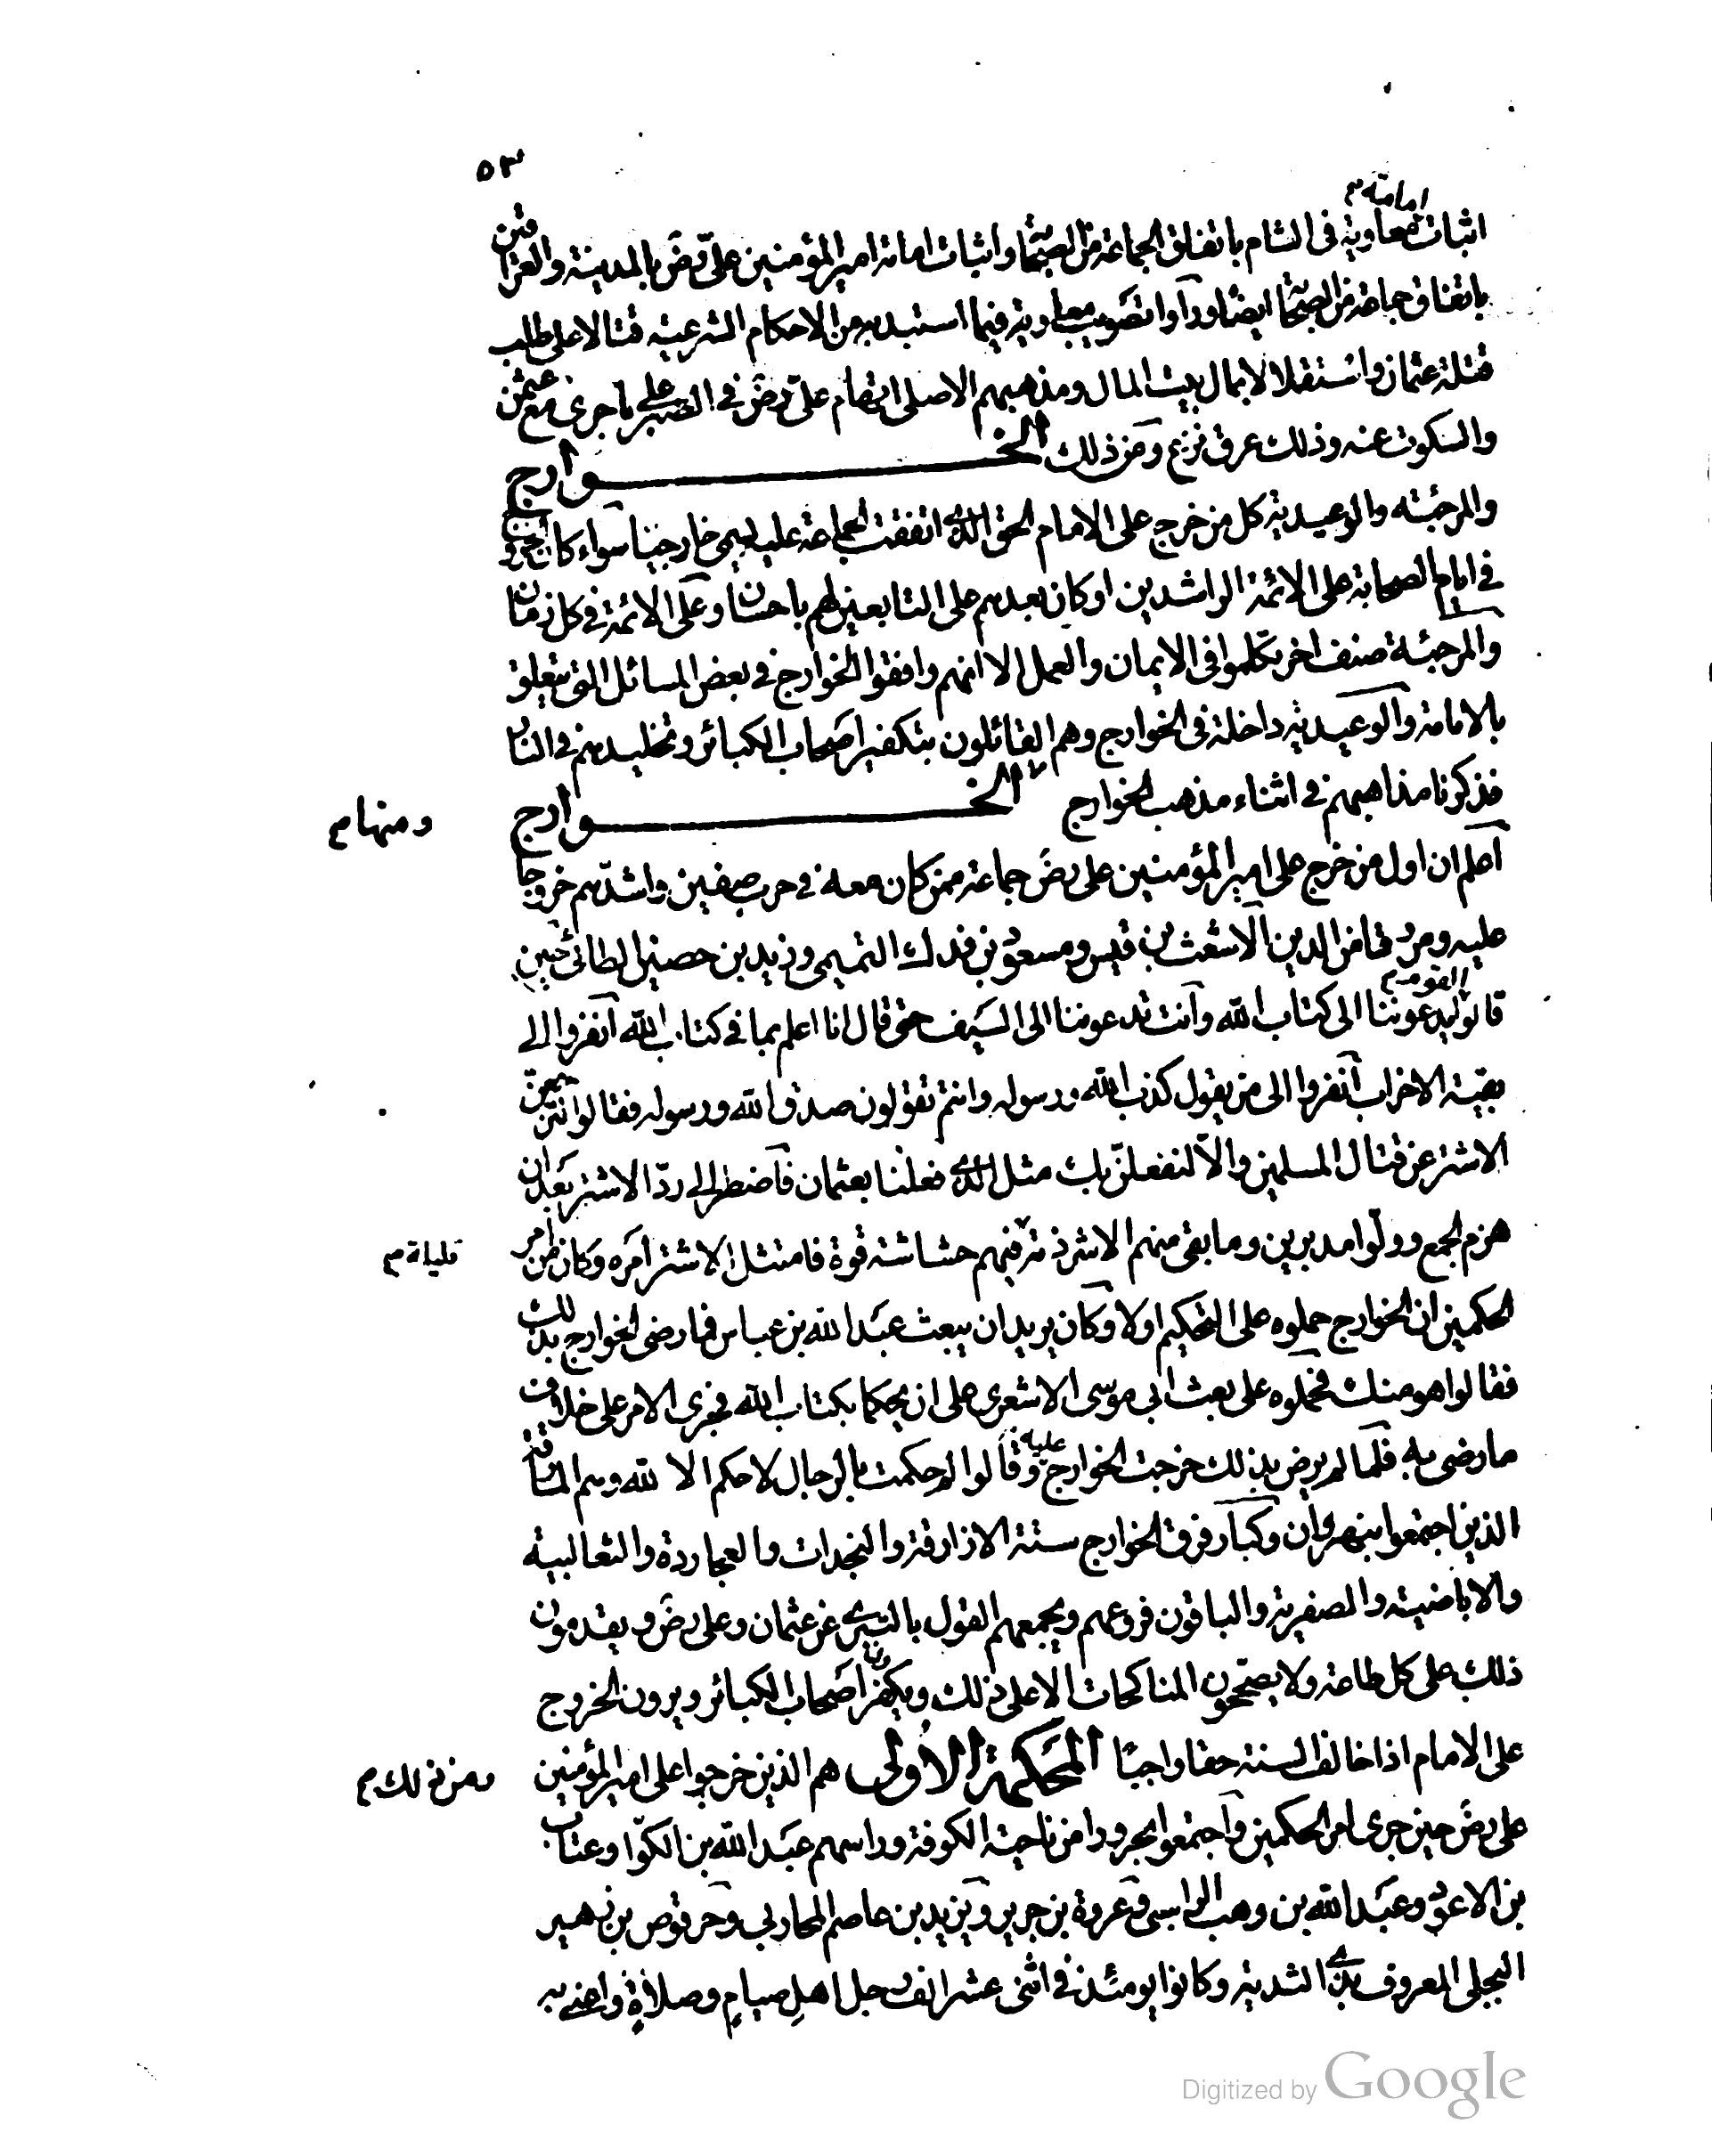 ٥٣
امامة م
اثبات معاوية فى الشام باتفاق الجماعة من الصحابة واثبات امامة امير المؤمنين على رض بالمدينة والعراقين
باتفاق جماعة من الصحابة ايضا وراوا تصويب معاوية فيما استبد به من الاحكام الشرعية قتالا على طلب
قتلة عثمان واستقلالا بمال بيت المال ومذهبهم الاصلى اتهام على رض فى الصبر على ما جرى مع عثمن
والسكوت عنه وذلك عرق نزع ومن ذلك الخـــوارج
والمرجئه والوعيدية كل من خرج على الامام الحق الذى اتفقت الجماعة عليه يسمى خارجيا سواء كان الخروج
فى ايام الصحابة على الائمة الراشدين او كان بعدهم على التابعين لهم باحسان وعلى الائمة فى كل زمان
والمرجئة صنف اخر تكلموا فى الايمان والعمل الا انهم وافقوا الخوارج فى بعض المسائل التى تتعلق
بالامامة والوعيدية داخلة فى الخوارج وهم القائلون بتكفير اصحاب الكبائر وتخليدهم فى النار
فذكرنا مذاهبهم فى اثناء مذهب الخوارج الخـــوارج
ومنها م
اعلم ان اول من خرج على امير المؤمنين على رض جماعة ممن كان معه فى حرب صفين واشدهم خروجا
عليه ومروقا من الدين الاشعث بن قيس ومسعود بن فدك التميمى وزيد بن حصين الطائى حين
القوم م
قالوا يدعوننا الى كتاب الله وانت تدعوننا الى السيف حتى قال انا اعلم بما فى كتاب الله انفروا الى
بقية الاحزاب انفروا الى من يقول كذب الله ورسوله وانتم تقولون صدق الله ورسوله فقالوا لترجعن
الاشتر عن قتال المسلمين والا لنفعلن بك مثل الذى فعلنا بعثمان فاضطر الى رد الاشتر بعد ان
هزم الجمع وولوا مدبرين وما بقى منهم الا شرذمة فيهم حشاشة قوة فامتثل الاشتر امره وكان من امر
قليلة م
الحكمين ان الخوارج حملوه على التحكيم اولا وكان يريد ان يبعث عبد الله بن عباس فما رضى الخوارج بذلك
فقالوا هو منك فحملوه على بعث ابى موسى الاشعرى على ان يحكما بكتاب الله فجرى الامر على خلاف
ما رضى به فلما لم يرض بذلك خرجت الخوارج عليه وقالوا لم حكمت بالرجال لا حكم الا لله وهم المارقة
الذين اجتمعوا بنهروان وكبار فرق الخوارج ستة الازارقة والنجدات والعجاردة والثعالبية
والاباضية والصفرية والباقون فروعهم ويجمعهم القول بالتبرى عن عثمان وعلى رض ويقدمون
ذلك على كل طاعة ولا يصححون المناكحات الا على ذلك ويكفرون اصحاب الكبائر ويرون الخروج
على الامام اذا خالف السنة حقا واجبا المحكمة الاولى هم الذين خرجوا على امير المؤمنين
ومن ذلك م
على رض حين جرى امر الحكمين واجتمعوا بحرورا من ناحية الكوفة وراسهم عبد الله بن الكوا وعتاب
بن الاعور وعبد الله بن وهب الراسبى وعروة بن جرير ويزيد بن عاصم المحاربى وحرقوص بن زهير
البجلى المعروف بذى الثدية وكانوا يومئذ فى اثنى عشر الف رجل اهل صيام وصلاة
Digitized by Google